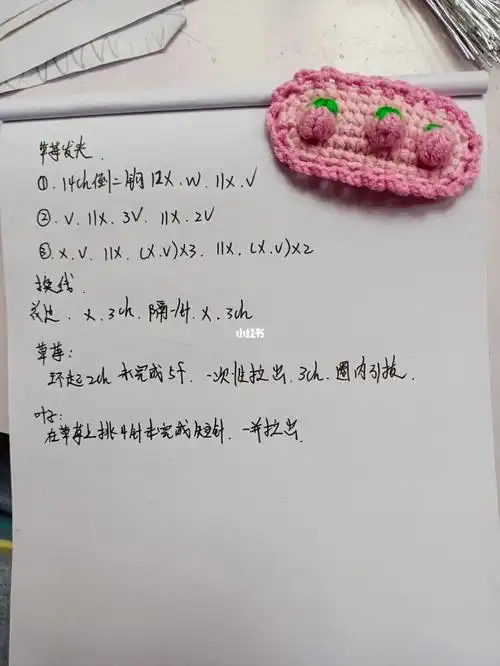 草莓发夹.
①. 14ch倒二钩 12X. W. 11X. V
②. V. 11X. 3V. 11X. 2V
③. X. V. 11X. (X.V)X3. 11X. (X.V)X2
换线.
花边. X. 3ch. 隔一针. X. 3ch
小红书
草莓:
环起2ch 未完成5f. 一次性拉出. 3ch. 圈内引拔.
叶子:
在草莓上挑4针未完成短针. 一并拉出.